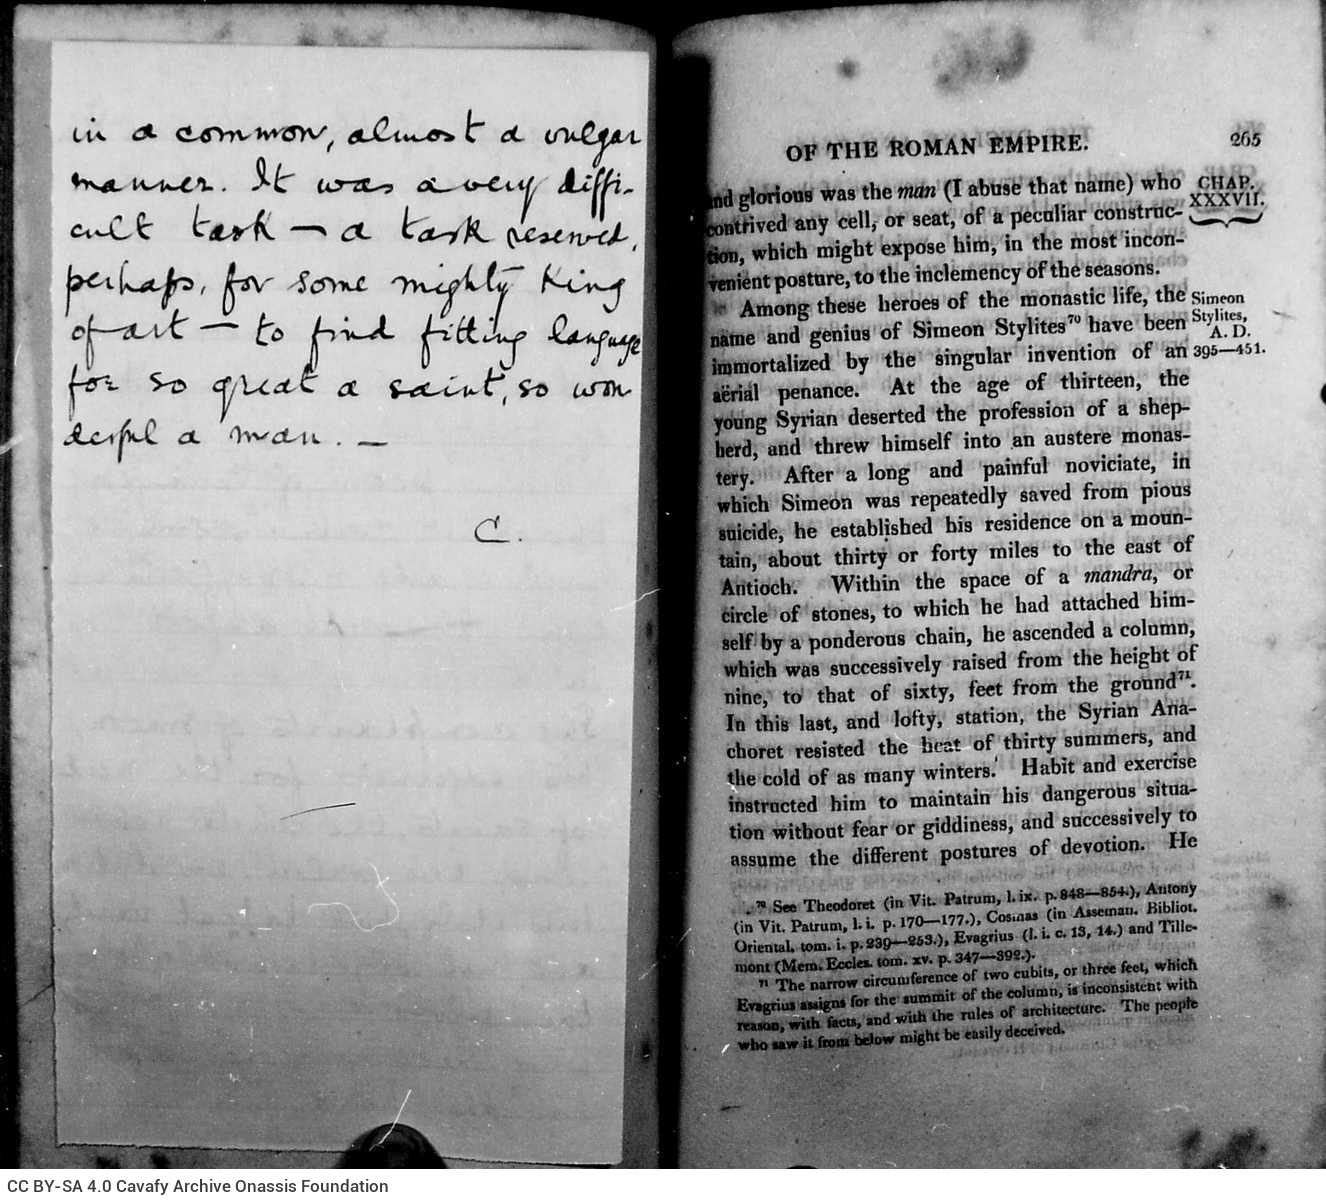 in a common, almost a vulgar
manner. It was a very diffi-
cult task — a task reserved,
perhaps, for some mighty King
of art — to find fitting language
for so great a saint, so won
derful a man. —
C.
OF THE ROMAN EMPIRE. 265
and glorious was the man (I abuse that name) who
contrived any cell, or seat, of a peculiar construc-
tion, which might expose him, in the most incon-
venient posture, to the inclemency of the seasons.
CHAP.
XXXVII.
Among these heroes of the monastic life, the
name and genius of Simeon Stylites70 have been
immortalized by the singular invention of an
aërial penance. At the age of thirteen, the
young Syrian deserted the profession of a shep-
herd, and threw himself into an austere monas-
tery. After a long and painful noviciate, in
which Simeon was repeatedly saved from pious
suicide, he established his residence on a moun-
tain, about thirty or forty miles to the east of
Antioch. Within the space of a mandra, or
circle of stones, to which he had attached him-
self by a ponderous chain, he ascended a column,
which was successively raised from the height of
nine, to that of sixty, feet from the ground71.
In this last, and lofty, station, the Syrian Ana-
choret resisted the heat of thirty summers, and
the cold of as many winters. Habit and exercise
instructed him to maintain his dangerous situa-
tion without fear or giddiness, and successively to
assume the different postures of devotion. He
Simeon
Stylites,
A. D.
395—451.
70 See Theodoret (in Vit. Patrum, l. ix. p. 848—854.), Antony
(in Vit. Patrum, l. i. p. 170—177.), Cosmas (in Asseman. Bibliot.
Oriental. tom. i. p. 239—253.), Evagrius (l. i. c. 13, 14.) and Tille-
mont (Mem. Eccles. tom. xv. p. 347—392.).
71 The narrow circumference of two cubits, or three feet, which
Evagrius assigns for the summit of the column, is inconsistent with
reason, with facts, and with the rules of architecture. The people
who saw it from below might be easily deceived.
CC BY-SA 4.0 Cavafy Archive Onassis Foundation